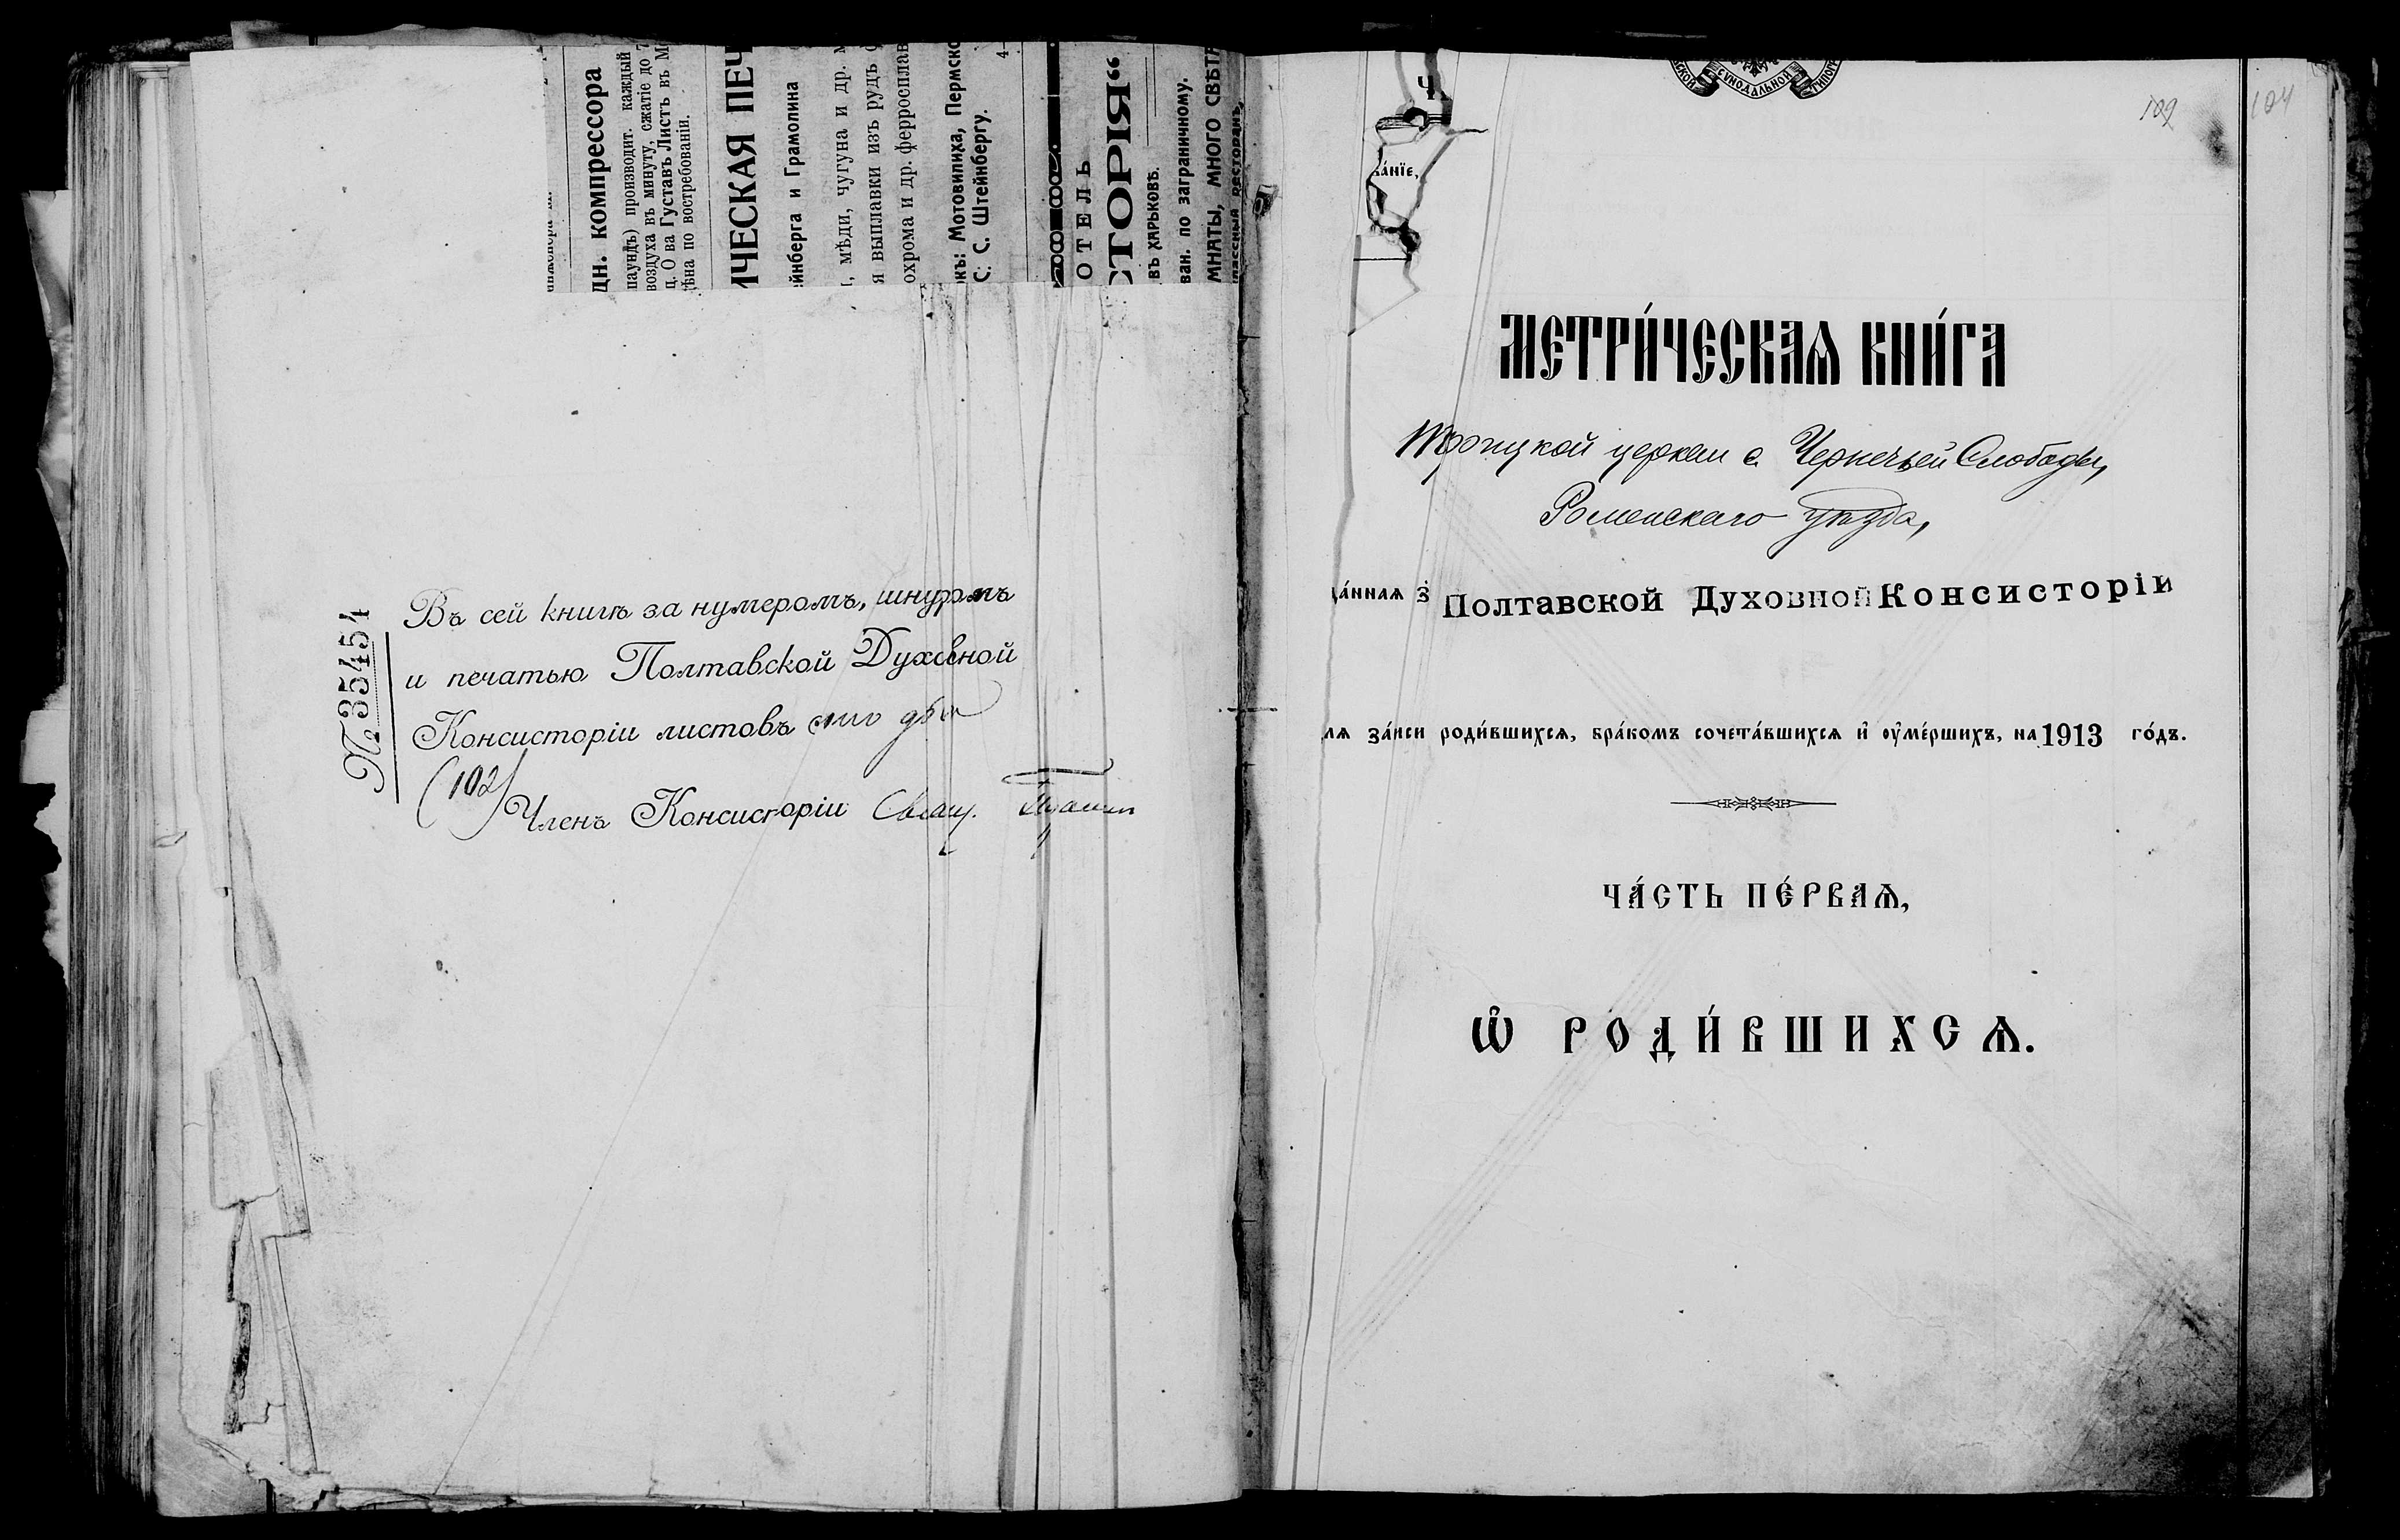 дн. компрессора
паундъ) производит. каждый
воздуха въ минуту, сжатіе до 7
ц. О ва Густавъ Листъ въ М
ѣна по востребованіи.
ИЧЕСКАЯ ПЕЧ
ейнберга и Грамолина
, мѣди, чугуна и др. м
я выплавки изъ рудъ ф
охрома и др. ферросплав
къ: Мотовилиха, Пермско
С. С. Штейнбергу.
4
ОТЕЛЬ
СТОРІЯ“
въ ХАРЬКОВѢ.
ван. по заграничному.
МНАТЫ, МНОГО СВѢТА
классный ресторанъ,
№ 35454
Въ сей книгѣ за нумеромъ, шнуромъ
и печатью Полтавской Духовной
Консисторіи листовъ сто два
(102)
Членъ Консисторіи Свящ.
СѴНОДАЛЬНОЙ
109 104
Ч
а́нїе,
МЕТРИ́ЧЕСКАѦ КНИ́ГА
Троицкой церкви с. Чернечьей Слободы,
Роменскаго уѣзда,
да́ннаѧ з̾ Полтавской Духовной Консисторіи
лѧ за́писи роди́вшихсѧ, бра́комъ сочета́вшихсѧ и҆ оу҆ме́ршихъ, на 1913 го́дъ.
ЧА́СТЬ ПЕ́РВАѦ,
Ѽ РОДИ́ВШИХСѦ.